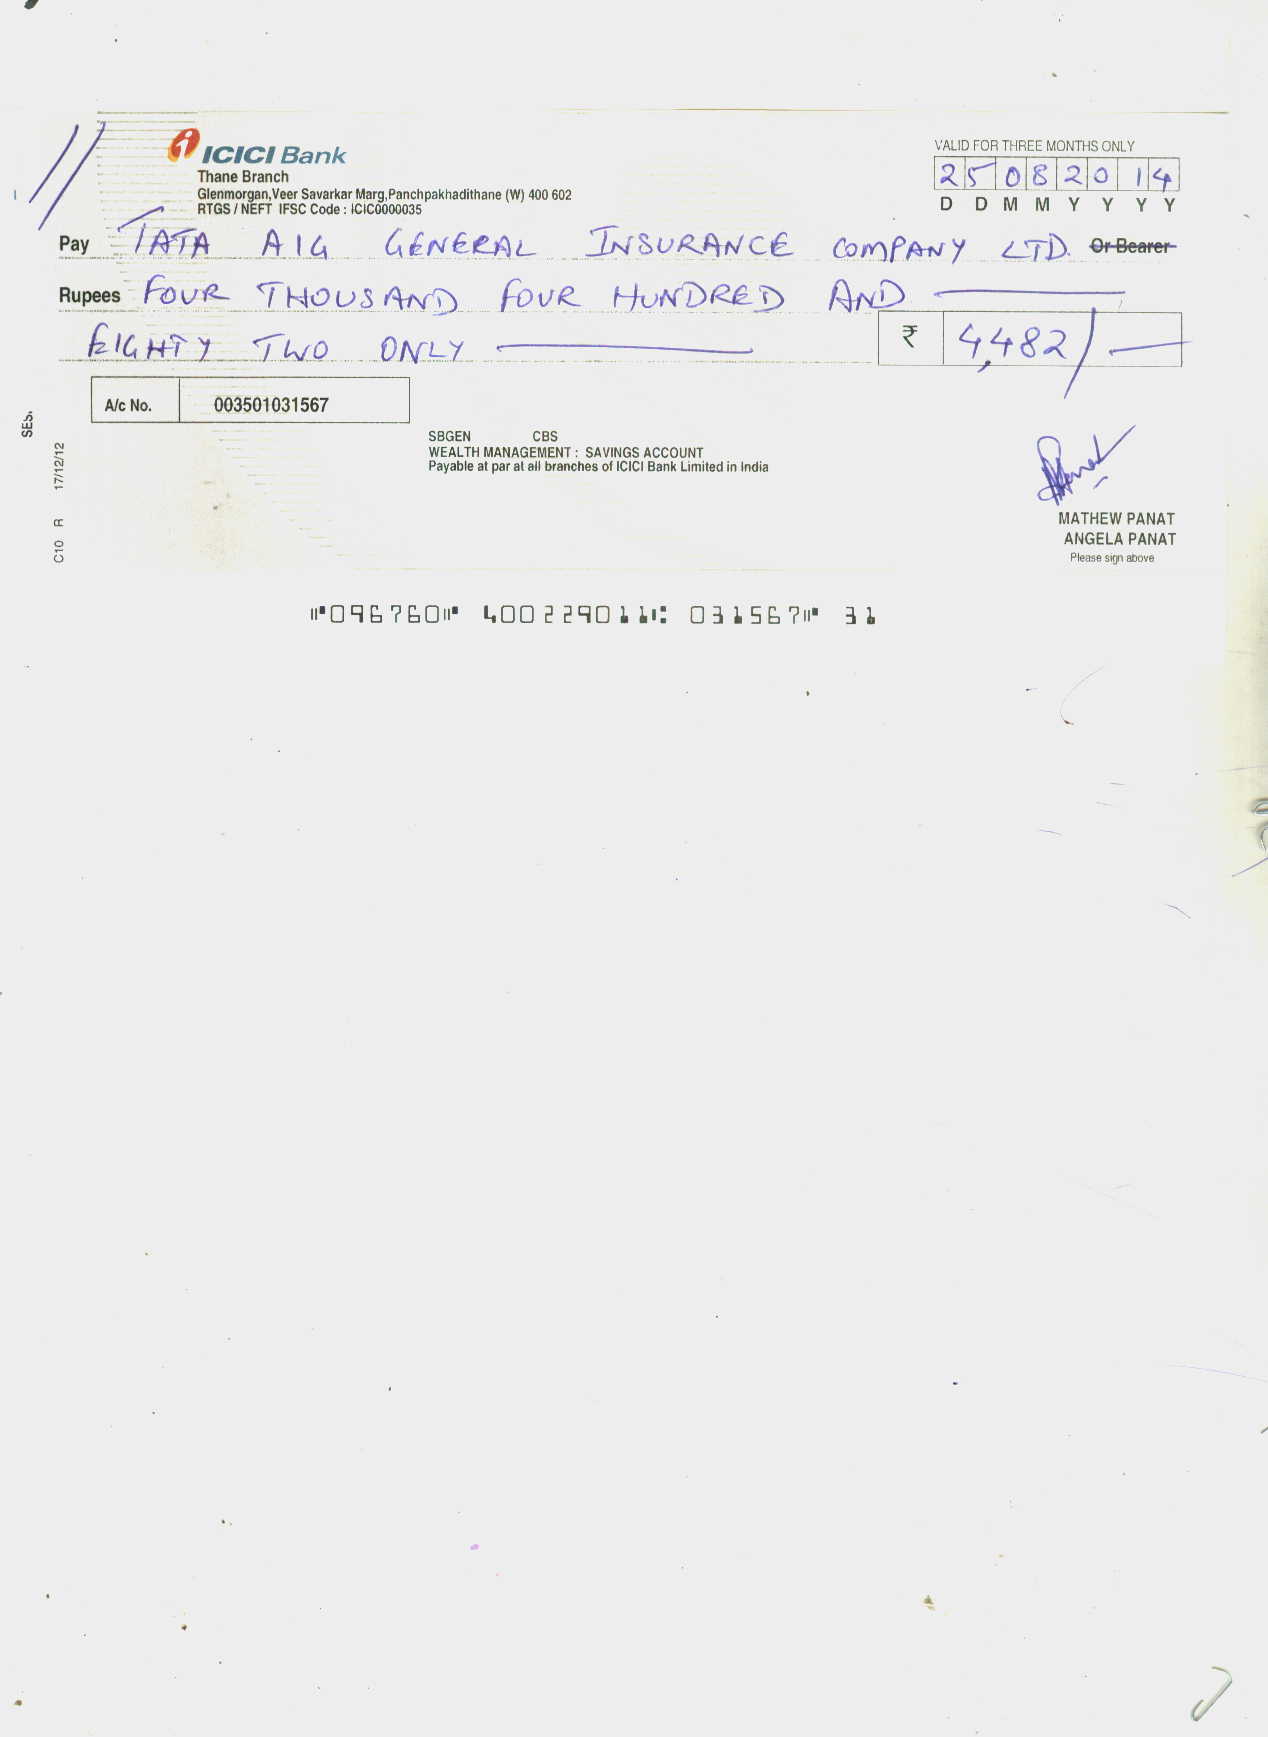 ICICI Bank
Thane Branch
Glenmorgan,Veer Savarkar Marg,Panchpakhadithane (W) 400 602
RTGS / NEFT IFSC Code : ICIC0000035
VALID FOR THREE MONTHS ONLY
25082014
D D M M Y Y Y Y
Pay TATA AIG GENERAL INSURANCE COMPANY LTD. Or Bearer
Rupees FOUR THOUSAND FOUR HUNDRED AND
EIGHTY TWO ONLY
₹ 4,482/-
A/c No. 003501031567
SBGEN CBS
WEALTH MANAGEMENT : SAVINGS ACCOUNT
Payable at par at all branches of ICICI Bank Limited in India
MATHEW PANAT
ANGELA PANAT
Please sign above
C10 R 17/12/12
096760 400229011 031567 31